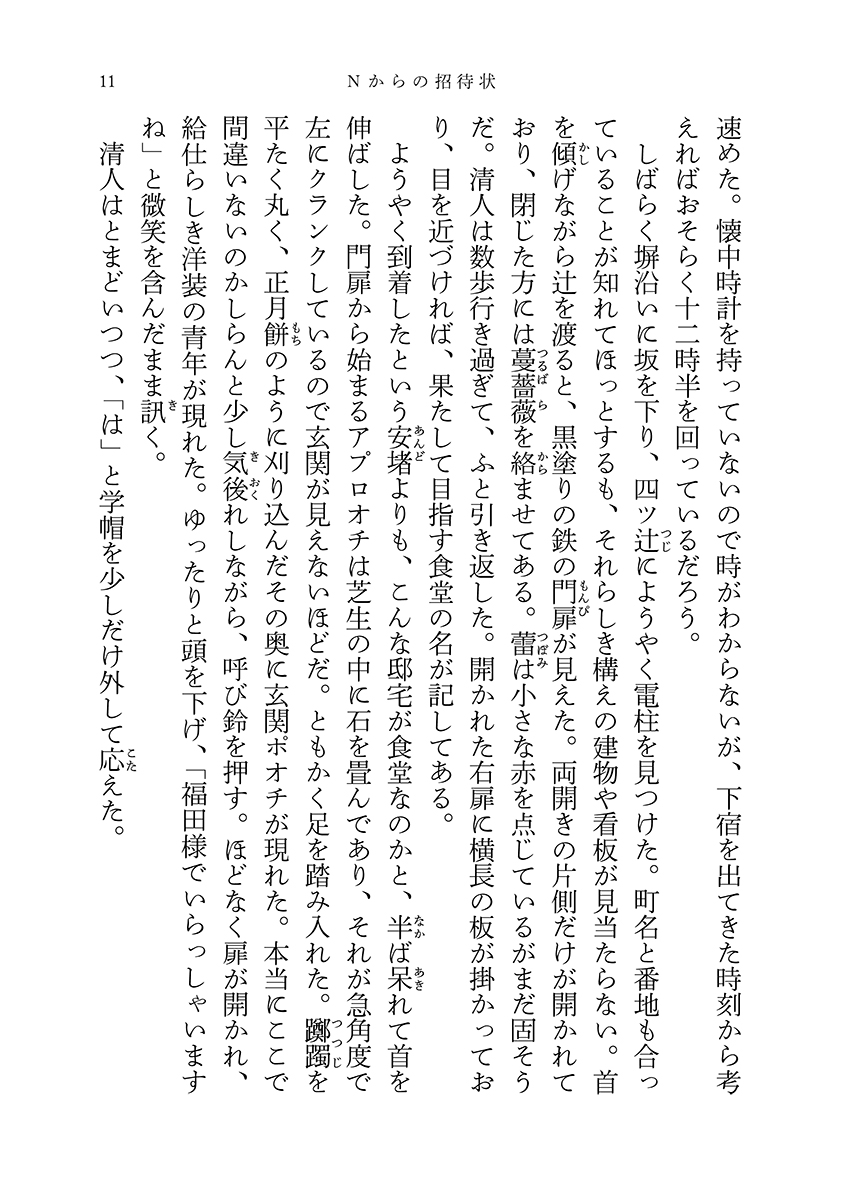 11
Nからの招待状
速めた。懐中時計を持っていないので時がわからないが、下宿を出てきた時刻から考
えればおそらく十二時半を回っているだろう。
しばらく塀沿いに坂を下り、四ツ辻にようやく電柱を見つけた。町名と番地も合っ
ていることが知れてほっとするも、それらしき構えの建物や看板が見当たらない。首
を傾げながら辻を渡ると、黒塗りの鉄の門扉が見えた。両開きの片側だけが開かれて
おり、閉じた方には蔓薔薇を絡ませてある。蕾は小さな赤を点じているがまだ固そう
だ。清人は数歩行き過ぎて、ふと引き返した。開かれた右扉に横長の板が掛かってお
り、目を近づければ、果たして目指す食堂の名が記してある。
ようやく到着したという安堵よりも、こんな邸宅が食堂なのかと、半ば呆れて首を
伸ばした。門扉から始まるアプロオチは芝生の中に石を畳んであり、それが急角度で
左にクランクしているので玄関が見えないほどだ。ともかく足を踏み入れた。躑躅を
平たく丸く、正月餅のように刈り込んだその奥に玄関ポオチが現れた。本当にここで
間違いないのかしらんと少し気後れしながら、呼び鈴を押す。ほどなく扉が開かれ、
給仕らしき洋装の青年が現れた。ゆったりと頭を下げ、「福田様でいらっしゃいます
ね」と微笑を含んだまま訊く。
清人はとまどいつつ、「は」と学帽を少しだけ外して応えた。